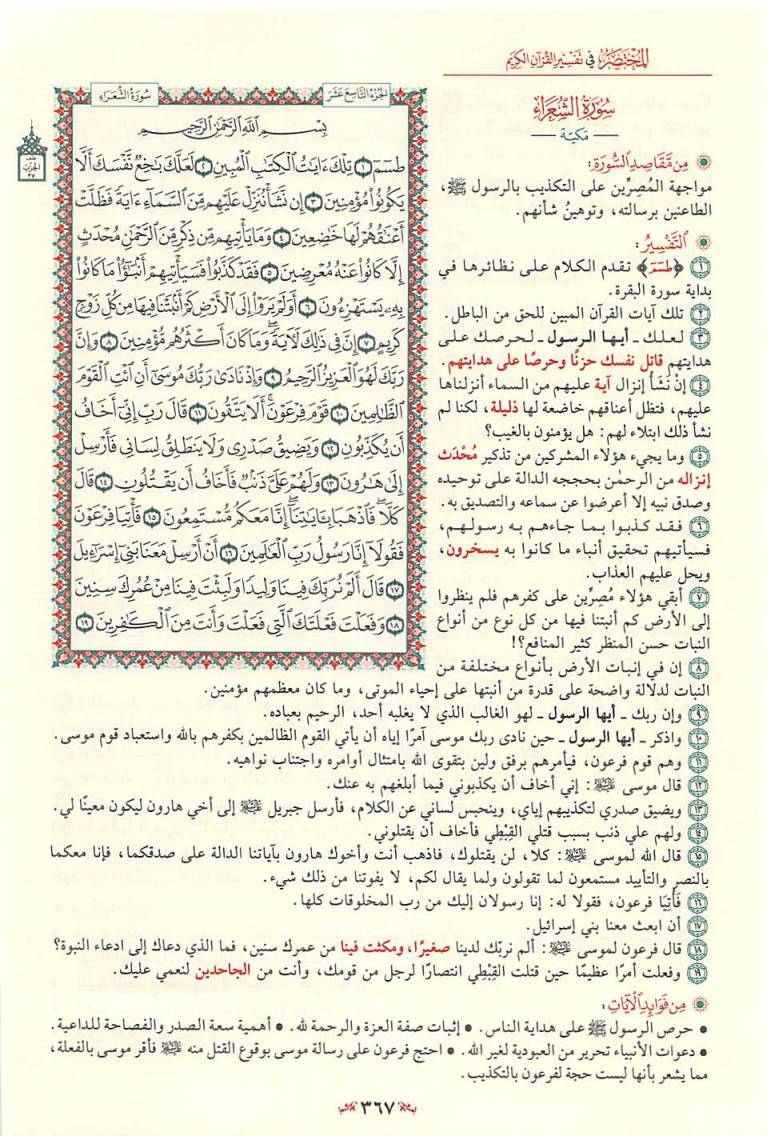 المختصر في تفسير القرآن الكريم
سورة الشعراء
مكية
من مقاصد السورة:
مواجهة المُصِرِّين على التكذيب بالرسول ﷺ،
الطاعنين برسالته، وتوهينُ شأنهم.
التفسير:
١ ﴿طسٓمٓ﴾ تقدم الكلام على نظائرها في
بداية سورة البقرة.
٢ تلك آيات القرآن المبين للحق من الباطل.
٣ لعلك ـ أيها الرسول ـ لحرصك على
هدايتهم قاتل نفسك حزنًا وحرصًا على هدايتهم.
٤ إنْ نَشَأْ إنزال آية عليهم من السماء أنزلناها
عليهم، فتظل أعناقهم خاضعة لها ذليلة، لكنا لم
نشأ ذلك ابتلاء لهم: هل يؤمنون بالغيب؟
٥ وما يجيء هؤلاء المشركين من تذكير مُحْدَث
إنزاله من الرحمٰن بحججه الدالة على توحيده
وصدق نبيه إلا أعرضوا عن سماعه والتصديق به.
٦ فقد كذبوا بما جاءهم به رسولهم،
فسيأتيهم تحقيق أنباء ما كانوا به يسخرون،
ويحل عليهم العذاب.
٧ أبقي هؤلاء مُصِرِّين على كفرهم فلم ينظروا
إلى الأرض كم أنبتنا فيها من كل نوع من أنواع
النبات حسن المنظر كثير المنافع؟!
٨ إن في إنبات الأرض بأنواع مختلفة من
النبات لدلالة واضحة على قدرة من أنبتها على إحياء الموتى، وما كان معظمهم مؤمنين.
٩ وإن ربك ـ أيها الرسول ـ لهو الغالب الذي لا يغلبه أحد، الرحيم بعباده.
١٠ واذكر ـ أيها الرسول ـ حين نادى ربك موسى آمرًا إياه أن يأتي القوم الظالمين بكفرهم بالله واستعباد قوم موسى.
١١ وهم قوم فرعون، فيأمرهم برفق ولين بتقوى الله بامتثال أوامره واجتناب نواهيه.
١٢ قال موسى ﷺ: إني أخاف أن يكذبوني فيما أبلغهم به عنك.
١٣ ويضيق صدري لتكذيبهم إياي، وينحبس لساني عن الكلام، فأرسل جبريل ﷺ إلى أخي هارون ليكون معينًا لي.
١٤ ولهم علي ذنب بسبب قتلي القِبْطِي فأخاف أن يقتلوني.
١٥ قال الله لموسى ﷺ: كلا، لن يقتلوك، فاذهب أنت وأخوك هارون بآياتنا الدالة على صدقكما، فإنا معكما
بالنصر والتأييد مستمعون لما تقولون ولما يقال لكم، لا يفوتنا من ذلك شيء.
١٦ فَأْتِيَا فرعون، فقولا له: إنا رسولان إليك من رب المخلوقات كلها.
١٧ أن ابعث معنا بني إسرائيل.
١٨ قال فرعون لموسى ﷺ: ألم نربّك لدينا صغيرًا، ومكثت فينا من عمرك سنين، فما الذي دعاك إلى ادعاء النبوة؟
١٩ وفعلت أمرًا عظيمًا حين قتلت القِبْطِي انتصارًا لرجل من قومك، وأنت من الجاحدين لنعمي عليك.
من فوائد الآيات:
• حرص الرسول ﷺ على هداية الناس. • إثبات صفة العزة والرحمة لله. • أهمية سعة الصدر والفصاحة للداعية.
• دعوات الأنبياء تحرير من العبودية لغير الله. • احتج فرعون على رسالة موسى بوقوع القتل منه ﷺ فأقر موسى بالفعلة،
مما يشعر بأنها ليست حجة لفرعون بالتكذيب.
الجزء التاسع عشر
سورة الشعراء
بِسْمِ ٱللَّهِ ٱلرَّحْمَٰنِ ٱلرَّحِيمِ
طسٓمٓ ١ تِلْكَ ءَايَٰتُ ٱلْكِتَٰبِ ٱلْمُبِينِ ٢ لَعَلَّكَ بَٰخِعٌ نَّفْسَكَ أَلَّا
يَكُونُوا۟ مُؤْمِنِينَ ٣ إِن نَّشَأْ نُنَزِّلْ عَلَيْهِم مِّنَ ٱلسَّمَآءِ ءَايَةً فَظَلَّتْ
أَعْنَٰقُهُمْ لَهَا خَٰضِعِينَ ٤ وَمَا يَأْتِيهِم مِّن ذِكْرٍ مِّنَ ٱلرَّحْمَٰنِ مُحْدَثٍ
إِلَّا كَانُوا۟ عَنْهُ مُعْرِضِينَ ٥ فَقَدْ كَذَّبُوا۟ فَسَيَأْتِيهِمْ أَنۢبَٰٓؤُا۟ مَا كَانُوا۟
بِهِۦ يَسْتَهْزِءُونَ ٦ أَوَلَمْ يَرَوْا۟ إِلَى ٱلْأَرْضِ كَمْ أَنۢبَتْنَا فِيهَا مِن كُلِّ زَوْجٍ
كَرِيمٍ ٧ إِنَّ فِى ذَٰلِكَ لَءَايَةً وَمَا كَانَ أَكْثَرُهُم مُّؤْمِنِينَ ٨ وَإِنَّ
رَبَّكَ لَهُوَ ٱلْعَزِيزُ ٱلرَّحِيمُ ٩ وَإِذْ نَادَىٰ رَبُّكَ مُوسَىٰٓ أَنِ ٱئْتِ ٱلْقَوْمَ
ٱلظَّٰلِمِينَ ١٠ قَوْمَ فِرْعَوْنَ أَلَا يَتَّقُونَ ١١ قَالَ رَبِّ إِنِّىٓ أَخَافُ
أَن يُكَذِّبُونِ ١٢ وَيَضِيقُ صَدْرِى وَلَا يَنطَلِقُ لِسَانِى فَأَرْسِلْ
إِلَىٰ هَٰرُونَ ١٣ وَلَهُمْ عَلَىَّ ذَنۢبٌ فَأَخَافُ أَن يَقْتُلُونِ ١٤ قَالَ
كَلَّا فَٱذْهَبَا بِـَٔايَٰتِنَآ إِنَّا مَعَكُم مُّسْتَمِعُونَ ١٥ فَأْتِيَا فِرْعَوْنَ
فَقُولَآ إِنَّا رَسُولُ رَبِّ ٱلْعَٰلَمِينَ ١٦ أَنْ أَرْسِلْ مَعَنَا بَنِىٓ إِسْرَٰٓءِيلَ
١٧ قَالَ أَلَمْ نُرَبِّكَ فِينَا وَلِيدًا وَلَبِثْتَ فِينَا مِنْ عُمُرِكَ سِنِينَ
١٨ وَفَعَلْتَ فَعْلَتَكَ ٱلَّتِى فَعَلْتَ وَأَنتَ مِنَ ٱلْكَٰفِرِينَ ١٩
الحزب
٣٧
٣٦٧